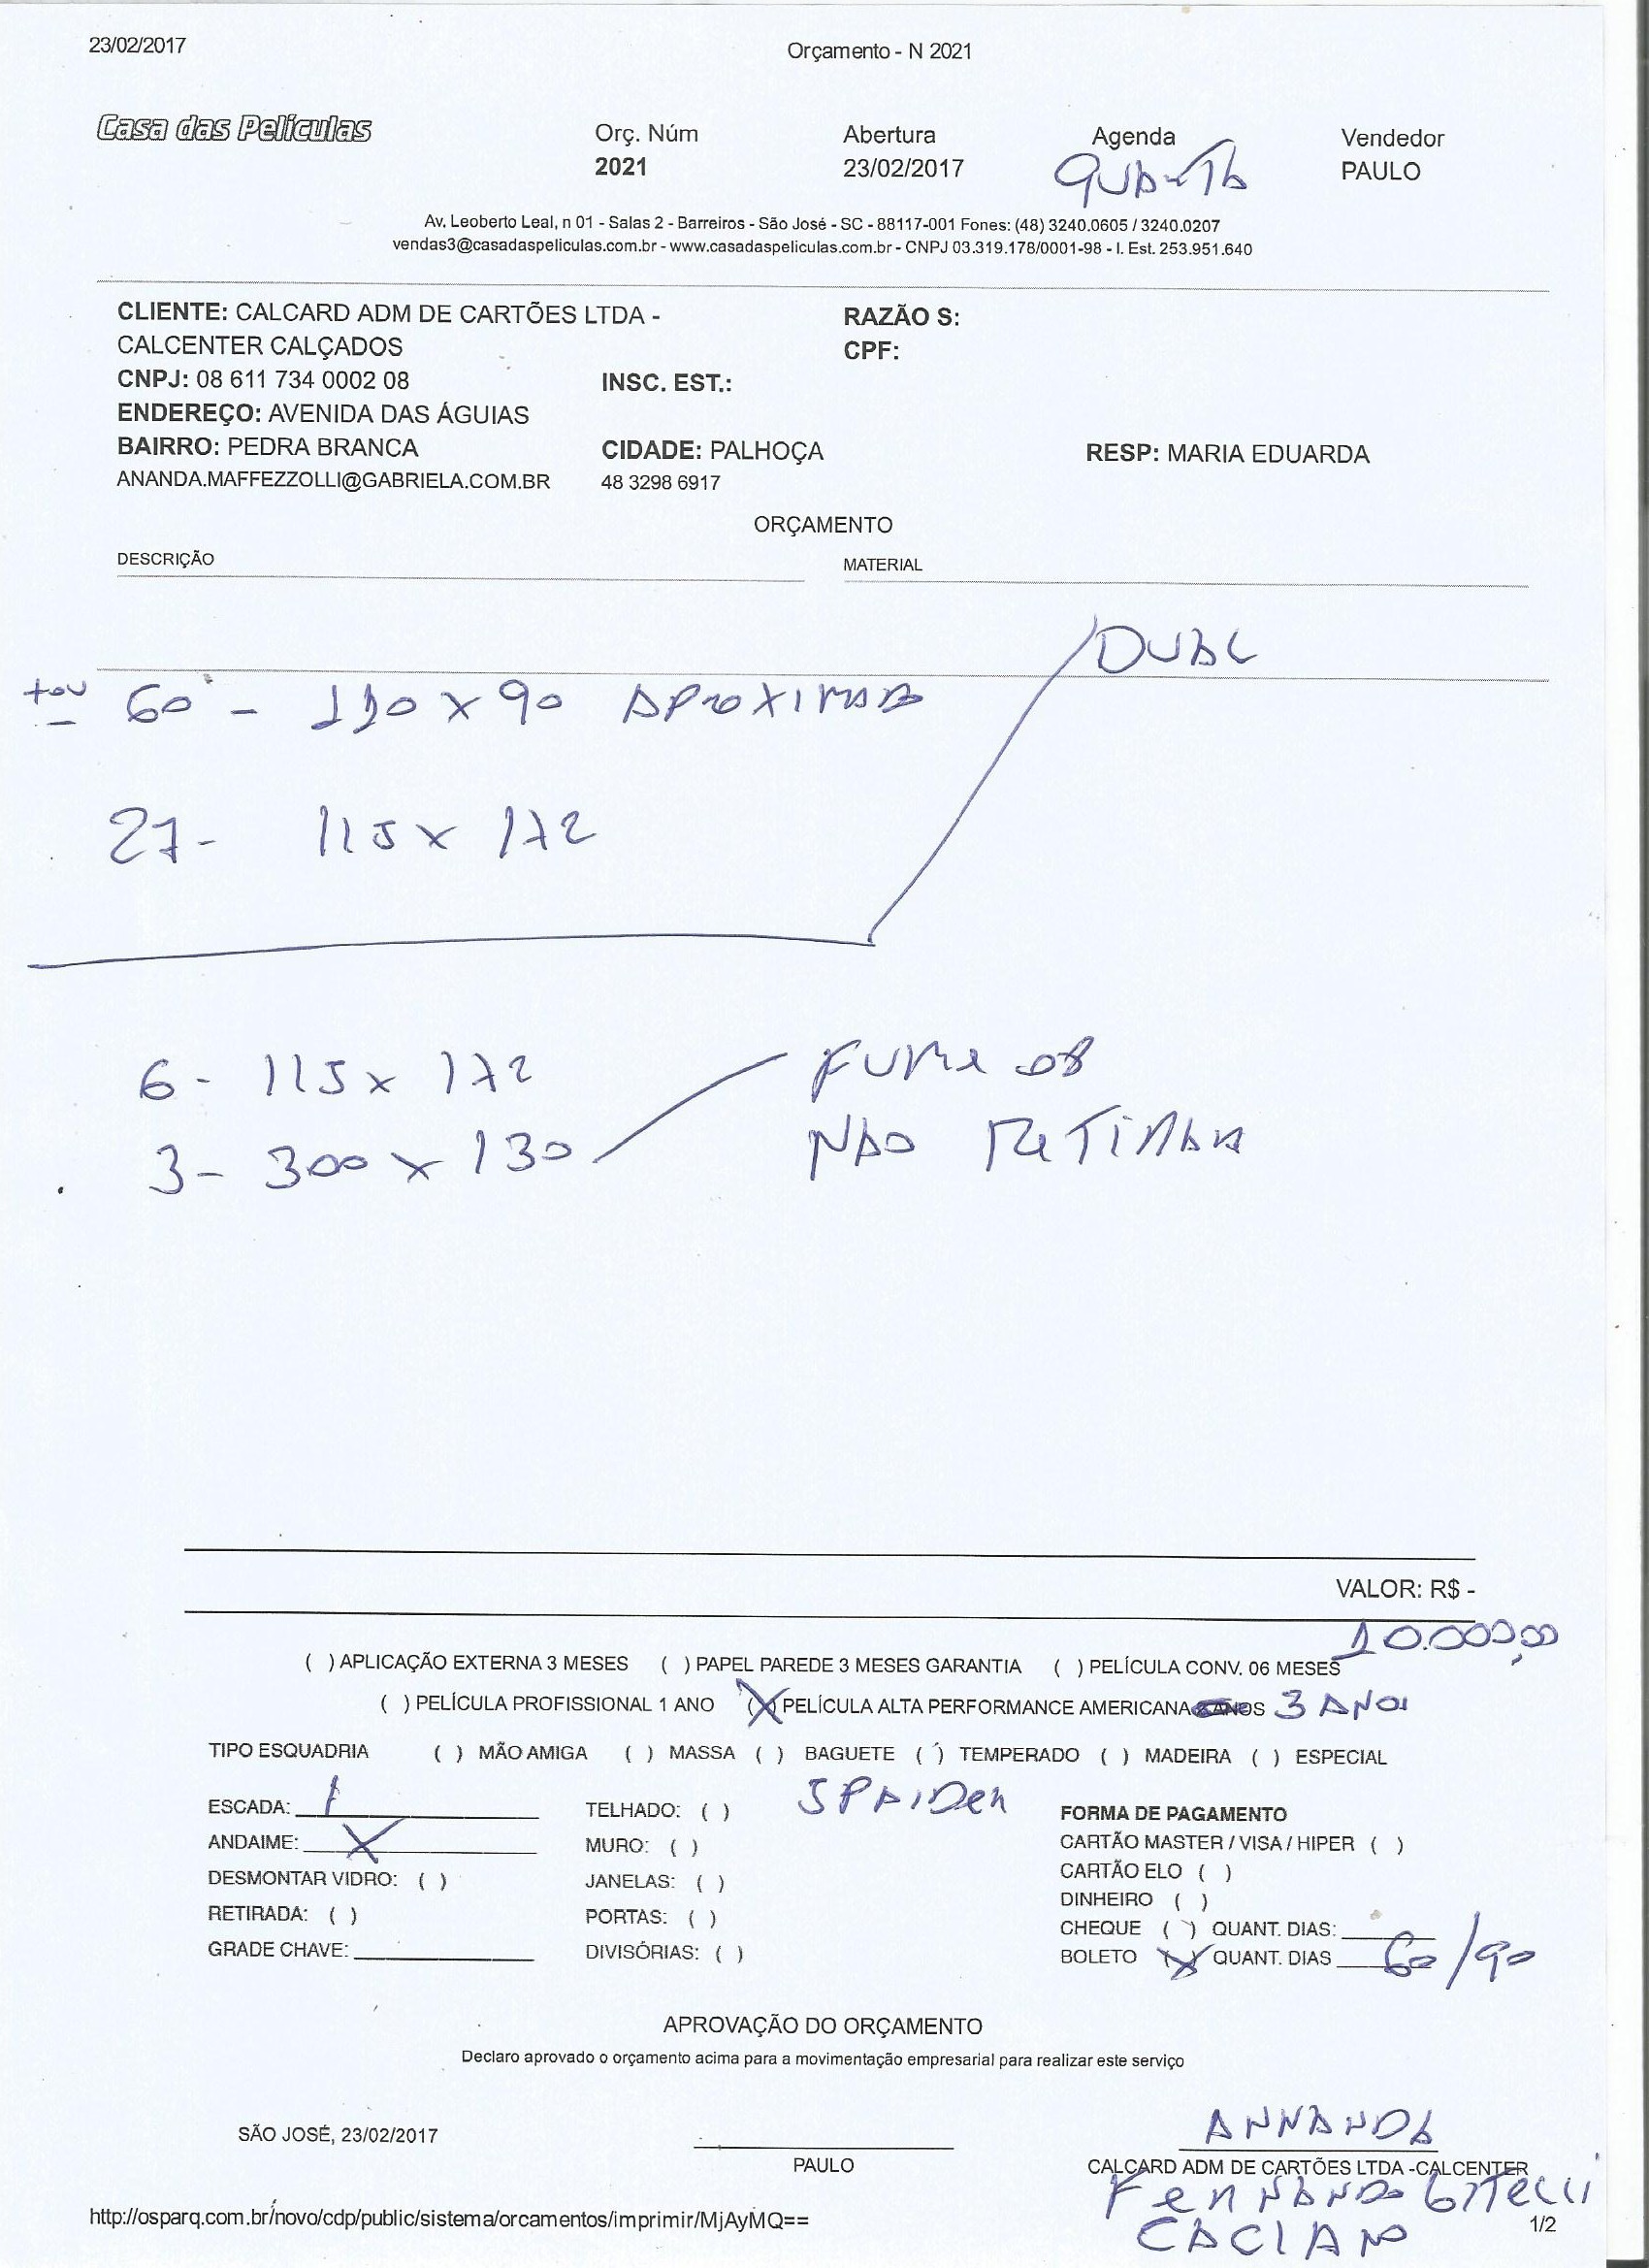 23/02/2017 Orçamento - N 2021
Casa das Películas Orç. Núm Abertura Agenda Vendedor
2021 23/02/2017 QUARTA PAULO
Av. Leoberto Leal, n 01 - Salas 2 - Barreiros - São José - SC - 88117-001 Fones: (48) 3240.0605 / 3240.0207
vendas3@casadaspeliculas.com.br - www.casadaspeliculas.com.br - CNPJ 03.319.178/0001-98 - I. Est. 253.951.640
CLIENTE: CALCARD ADM DE CARTÕES LTDA - RAZÃO S:
CALCENTER CALÇADOS CPF:
CNPJ: 08 611 734 0002 08 INSC. EST.:
ENDEREÇO: AVENIDA DAS ÁGUIAS
BAIRRO: PEDRA BRANCA CIDADE: PALHOÇA RESP: MARIA EDUARDA
ANANDA.MAFFEZZOLLI@GABRIELA.COM.BR 48 3298 6917
ORÇAMENTO
DESCRIÇÃO MATERIAL
DUAL
60 - 110 x 90 APROXIMADO
27 - 115 x 172
6 - 115 x 172 FUME 08
3 - 300 x 130 NAO
VALOR: R$ -
10.000,00
( ) APLICAÇÃO EXTERNA 3 MESES ( ) PAPEL PAREDE 3 MESES GARANTIA ( ) PELÍCULA CONV. 06 MESES
( ) PELÍCULA PROFISSIONAL 1 ANO (X) PELÍCULA ALTA PERFORMANCE AMERICANA ANOS 3 ANOS
TIPO ESQUADRIA ( ) MÃO AMIGA ( ) MASSA ( ) BAGUETE ( ) TEMPERADO ( ) MADEIRA ( ) ESPECIAL
ESCADA: 1 TELHADO: ( ) SPAIDER FORMA DE PAGAMENTO
ANDAIME: X MURO: ( ) CARTÃO MASTER / VISA / HIPER ( )
DESMONTAR VIDRO: ( ) JANELAS: ( ) CARTÃO ELO ( )
RETIRADA: ( ) PORTAS: ( ) DINHEIRO ( )
GRADE CHAVE: DIVISÓRIAS: ( ) CHEQUE ( ) QUANT. DIAS:
BOLETO (X) QUANT. DIAS 60/90
APROVAÇÃO DO ORÇAMENTO
Declaro aprovado o orçamento acima para a movimentação empresarial para realizar este serviço
ANNANDA
SÃO JOSÉ, 23/02/2017
PAULO CALCARD ADM DE CARTÕES LTDA -CALCENTER
FERNANDO
http://osparq.com.br/novo/cdp/public/sistema/orcamentos/imprimir/MjAyMQ== 1/2